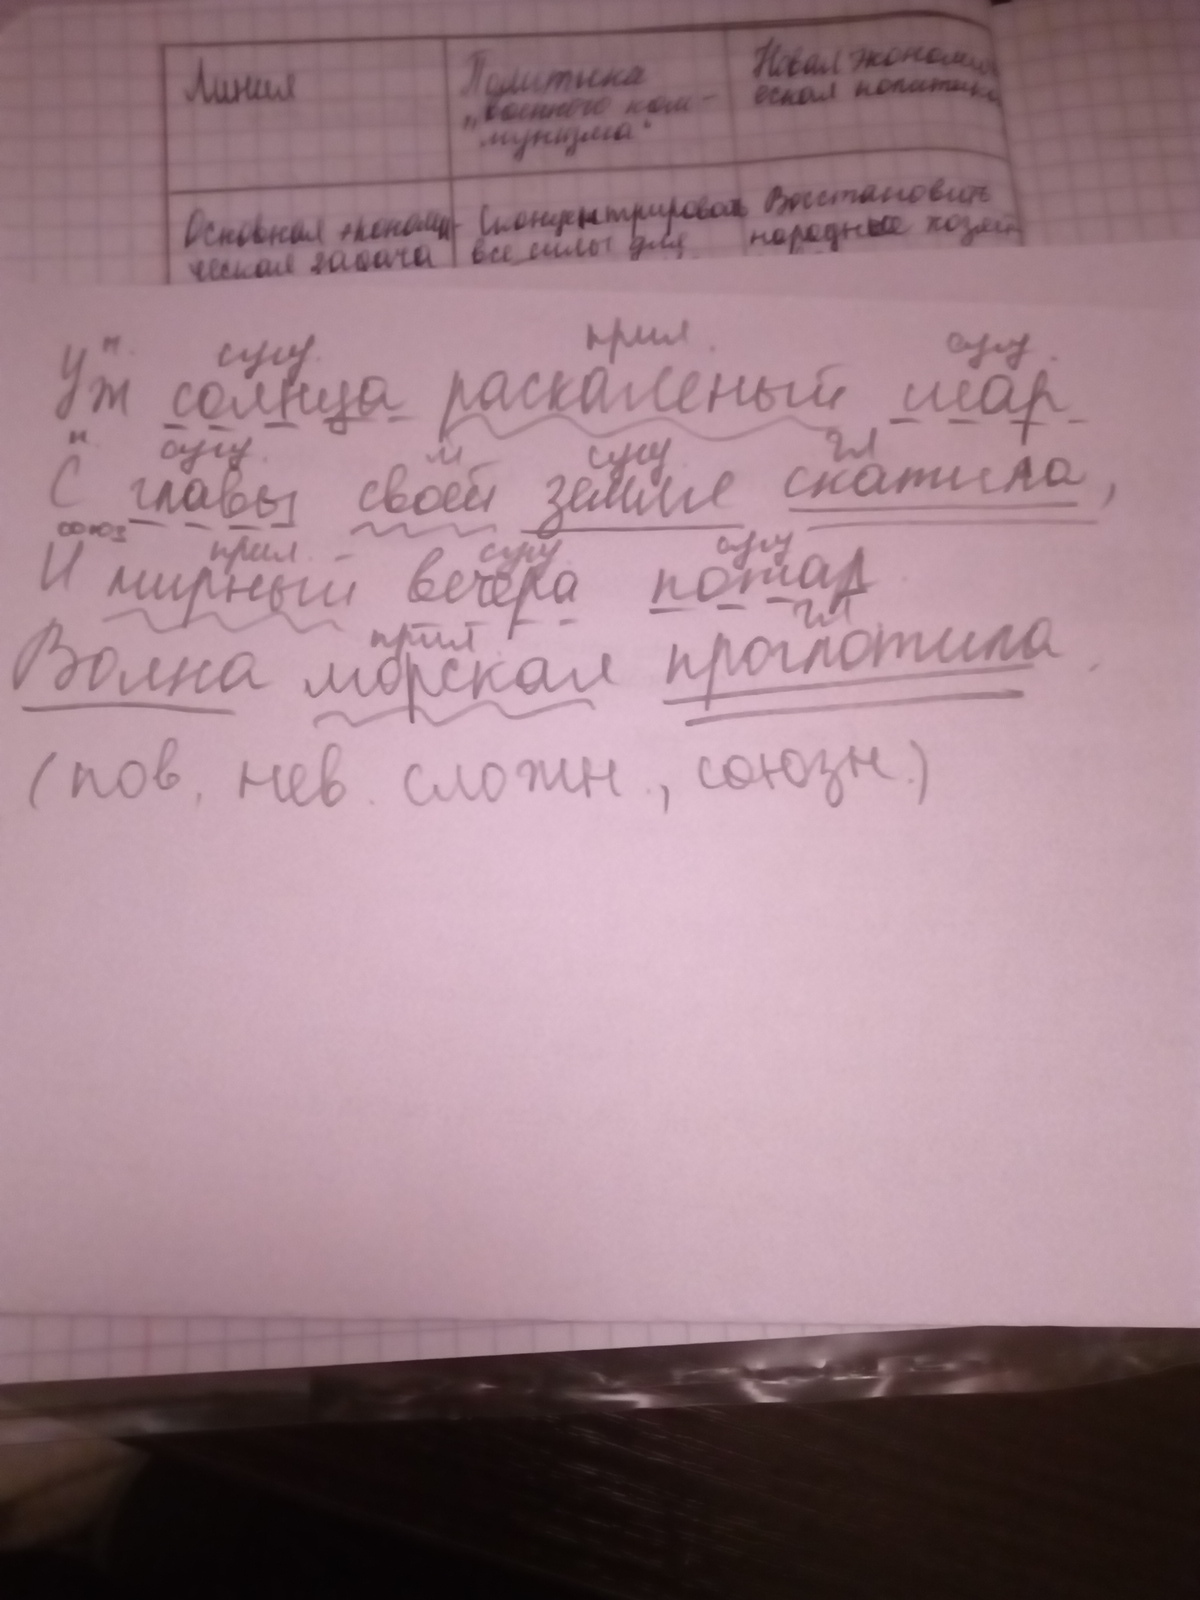 Линия Политика Новая экономи
„военного ком- еская политика
мунизма"
Основная экономи- Сконцентрировать Восстановить
ческая задача все силы для народные хозяй
н. сущ. прил. сущ.
Уж солнца раскаленый шар
н. сущ. м сущ гл
С главы своей земле скатила,
союз прил. сущ. сущ
И мирный вечера пожар
прил гл
Волна морская проглотила.
(пов, нев. сложн., союзн.)